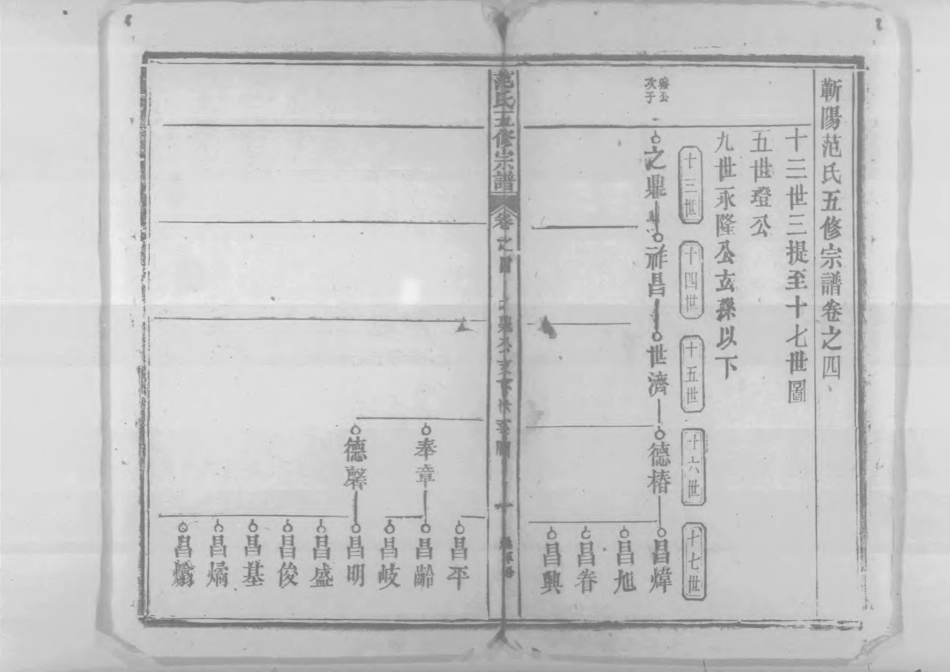 蘄陽范氏五修宗譜卷之四
十三世三提至十七世圖
五世瑆公
九世永隆公玄孫以下
十三世
十四世
十五世
十六世
十七世
公
次子
之鼎
祥昌
世濟
德椿
昌煒
昌旭
昌春
昌興
范氏五修宗譜
卷之四
一
奉章
德馨
昌平
昌齡
昌岐
昌明
昌盛
昌俊
昌基
昌燏
昌